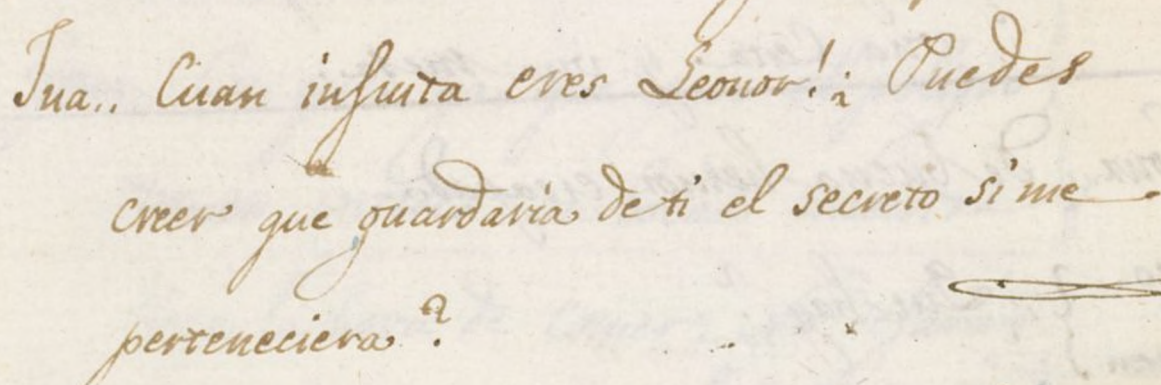 Jua.. Cuan injusta eres Leonor! ¿Puedes
creer que guardaria de ti el secreto si me
perteneciera?